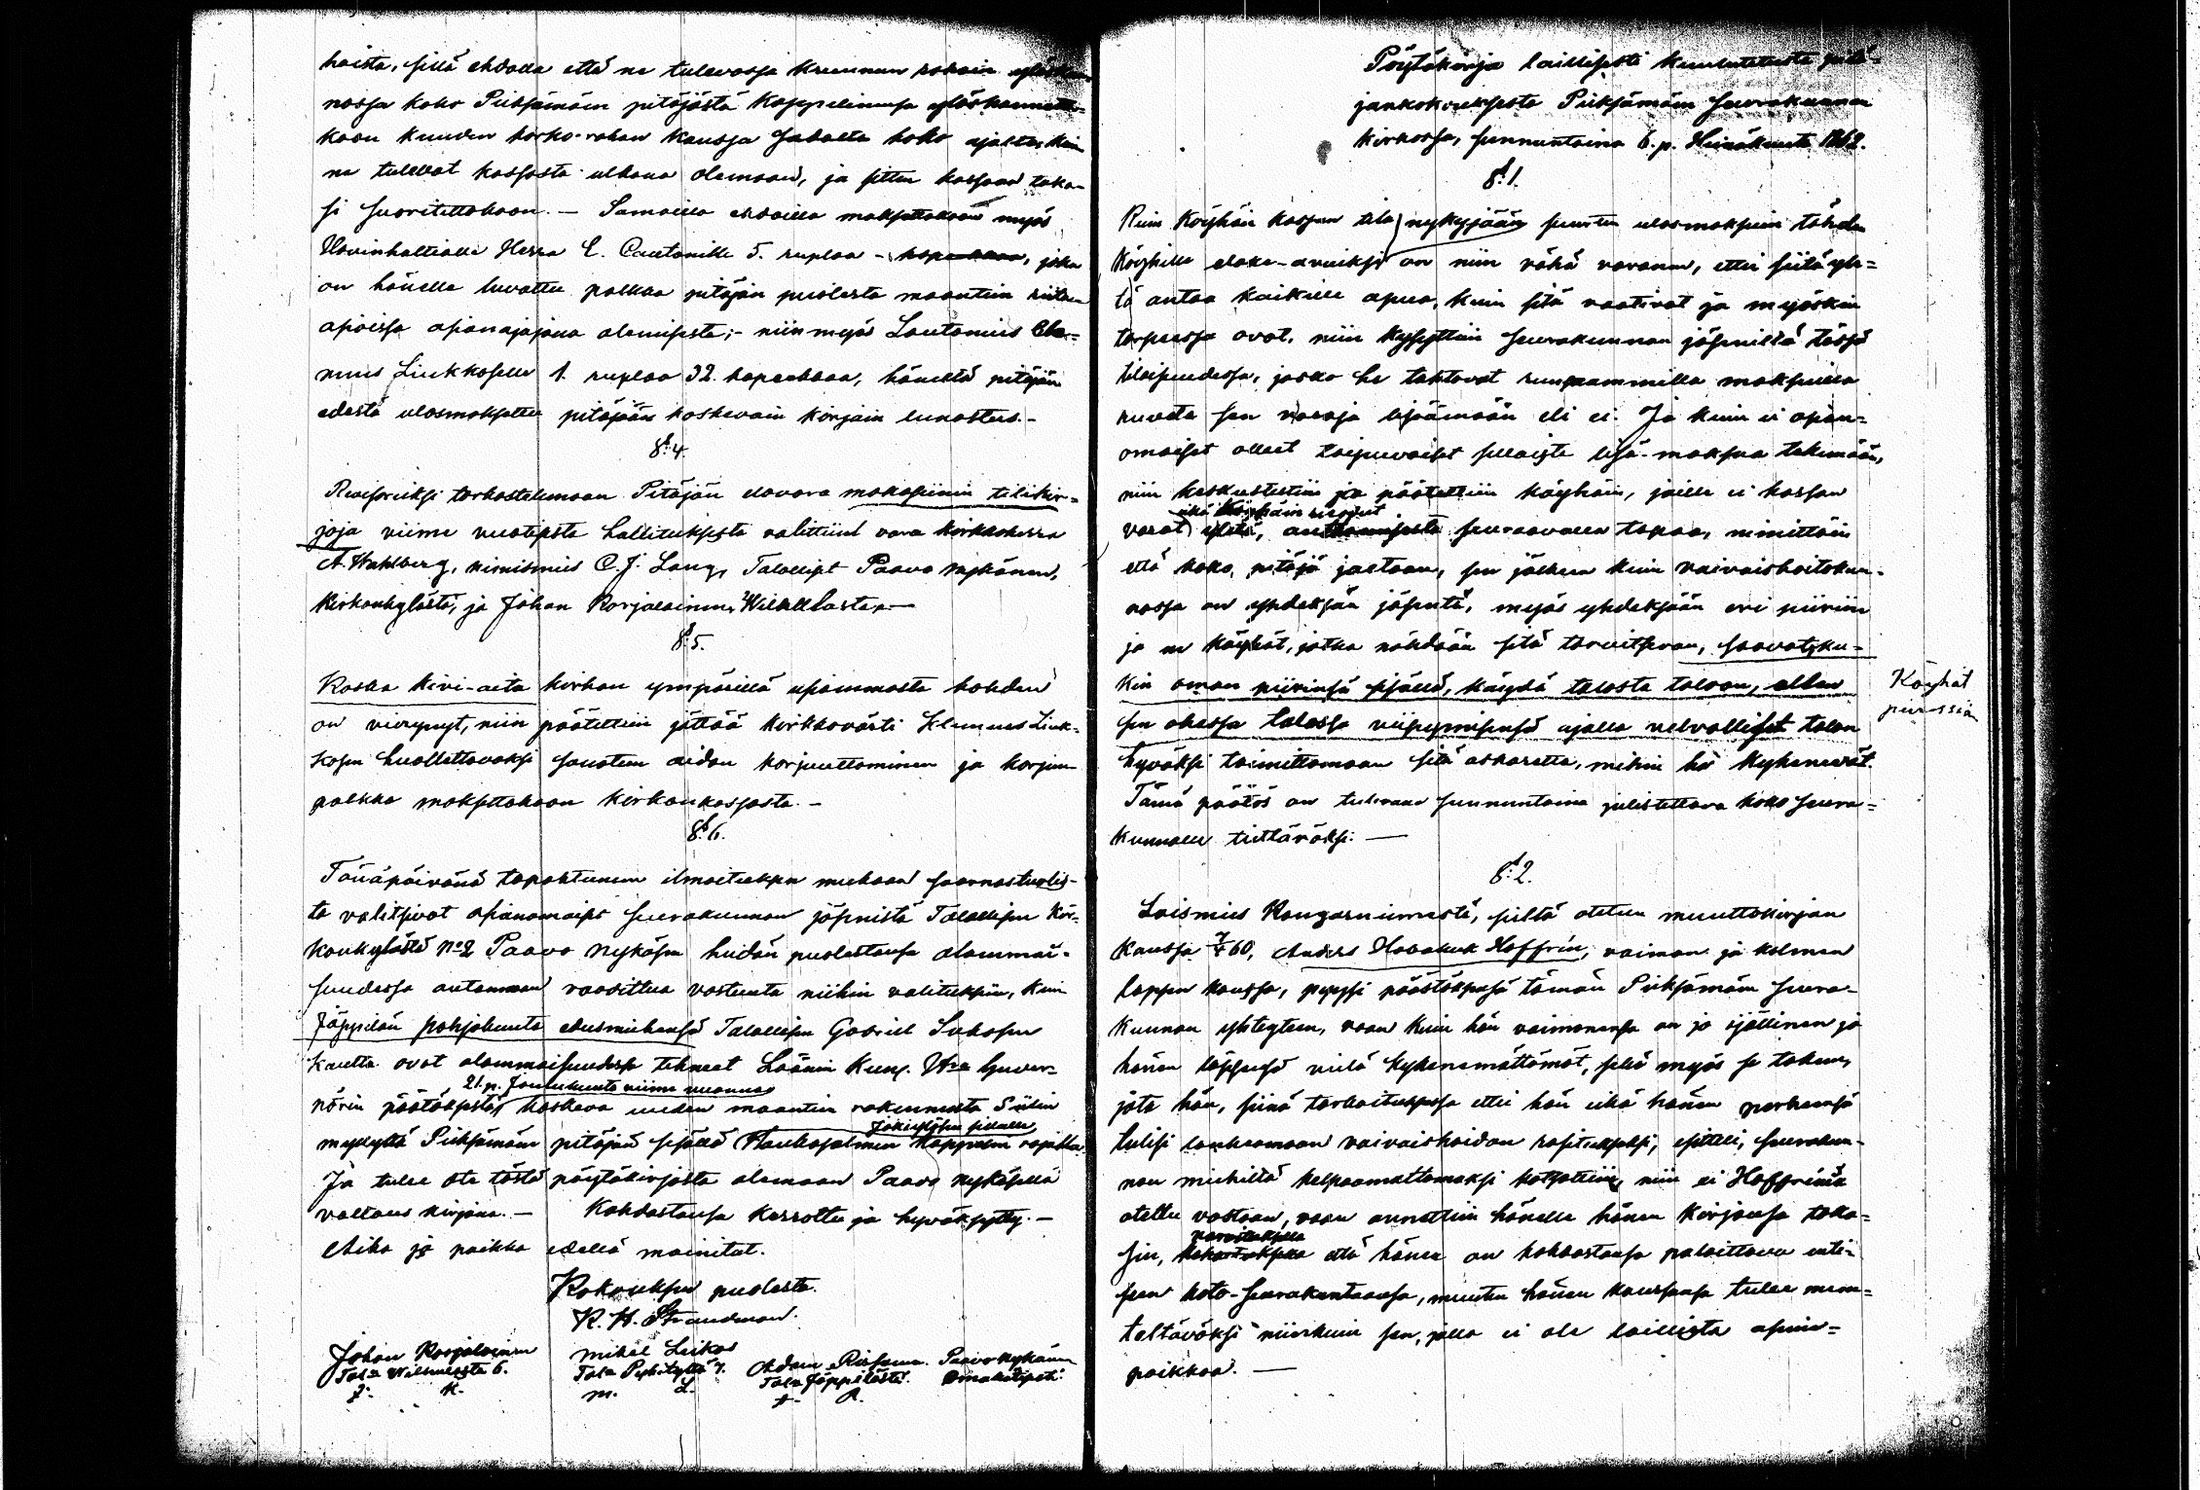 haista, sillä ehdolla että ne tulevassa kruunun rahain
nossa koko Pieksämäen pitäjästä Kappelinensa ylöskannetta-
koon kuuden korko-rahan kanssa sadalta koko ajalta, kuin
ne tulevat kassasta ulkona olemaan, ja sitten kassaan taka-
si suoritettakoon. — Samoilla ehdoilla maksettakoon myös
Herra E. Cautonille 5. ruplaa - kopeekkaa, joka
on hänelle luvattu palkka pitäjän puolesta maantien
asioissa asianajajana olemisesta; - niin myös Lautamies Cle-
mens Liukkoselle 1. ruplaa 32. kopeekkaa, häneltä pitäjän
edestä ulosmaksettu pitäjään koskevain kirjain lunastus. -
§ 4.
Reviisoriksi tarkastelemaan Pitäjän elovara makasiinin tilikir-
joja viime vuotisesta hallituksesta valittiin vara kirkkoherra
A. Wahlberg, nimismies C. J. Lang, Talolliset Paavo Nykänen,
Kirkonkylästä, ja Johan Korjalainen, —
§ 5.
Koska kivi-aita kirkon ympärillä usiammasta kohden
on vierynyt, niin päätettiin jättää kirkkovärti Klemens Liuk-
kosen huollettavaksi sanotun aidan korjuuttaminen ja korjuu
palkka maksettakoon kirkonkassasta. -
§ 6.
Tänäpäivänä tapahtuneen ilmoituksen mukaan saarnastuolis-
ta valitsivat asianomaiset seurakunnan jäsenistä Talollisen Kir-
konkylästä No 2 Paavo Nykäsen heidän puolestansa alammai-
suudessa antamaan vaadittua vastausta niihin valituksiin, kuin
Jäppilän pohjakunta edusmiehensä Talollisen Gabriel Sukosen
kautta ovat alammaisuudessa tehneet Läänin Kung. Wce Guver-
21. p. Joulukuuta viime vuonna
nörin päätöksestä, koskeva uuden maantien rakennusta
mykyltä Pieksämäen pitäjän sisällä Haukosalmen Kappelin rajalle.
Ja tulee ote tästä pöytäkirjasta olemaan Paavo Nykäsellä
valtaus kirjana. — Kohdastansa kerrottu ja hyväksytty. —
Aika ja paikka edellä mainitut.
Kokouksen puolesta.
K. H. Strandman.
Johan Korjalainen Mikel Liikos Adam Paavo Nykänen
6. Tal: Jäppilästä. omakätisesti.
J. K. M. L. A. R.
Pöytäkirja laillisesti kuulutetusta pitä-
jänkokouksesta Pieksämäen seurakunnan
kirkossa, sunnuntaina 6. p. Heinäkuuta 1862.
§ 1.
Kuin Köyhäin kassan tila nykyjään suurten ulosmaksuin tähden
Köyhille elake-avuiksi on niin vähä varanen, ettei siitä yle-
tä antaa kaikille apua, kuin sitä vaativat ja myöskin
tarpeessa ovat, niin kysyttiin seurakunnan jäseniltä tässä
tilaisuudessa, josko he tahtovat runsaammilla maksuilla
ruveta sen varoja lisäämään eli ei. Ja kuin ei asian-
omaiset olleet taipuvaiset sellaista lisä-maksua tekemään,
niin keskusteltiin ja päätettiin köyhäin, joille ei kassan
varat ylety, seuraavalla tapaa, nimittäin
että koko pitäjä jaetaan, sen jälkeen kuin vaivaishoitokun-
nossa on yhdeksän jäsentä, myös yhdeksään eri piiriin
ja ne köyhät, jotka nähdään sitä tarvitsevan, saavat, ku-
kin oman piirinsä sisällä, käydä talosta taloon, ollen
sen ohessa talossa viipymisensä ajalla velvolliset talon
hyväksi toimittamaan sitä askaretta, mihin he kykenevät.
Tämä päätös on tulevana sunnuntaina julistettava koko seura-
kunnalle tiettäväksi. —
Köyhät
piirissiin
§ 2.
Loismies Kangasniemestä, sieltä otetun muuttokirjan
kanssa 60, Anders Habakuk Hoffrin, vaimon ja kolmen
lapsen kanssa, pyysi päästäksensä tämän Pieksämäen seura-
kunnan yhteyteen, vaan kuin hän vaimonensa on jo ijällinen ja
hänen lapsensä vielä kykenemättömät, sekä myös se takaus,
jota hän, siinä tarkoituksessa ettei hän eikä hänen perheensä
tulisi lankeamaan vaivaishoidon rasitukseksi, esitteli, seurakun-
nan miehiltä kelpaamattomaksi katsottiin, niin ei Hoffriniä
otettu vastaan, vaan annettiin hänelle hänen kirjansa taka-
varoituksella
sin, kehoituksella että hänen on kohdastansa palaittava enti-
seen koto-seurakuntaansa, muuten hänen kanssansa tulee menn-
teltäväksi niinkuin sen, jolla ei ole laillista asuin-
paikkaa. —